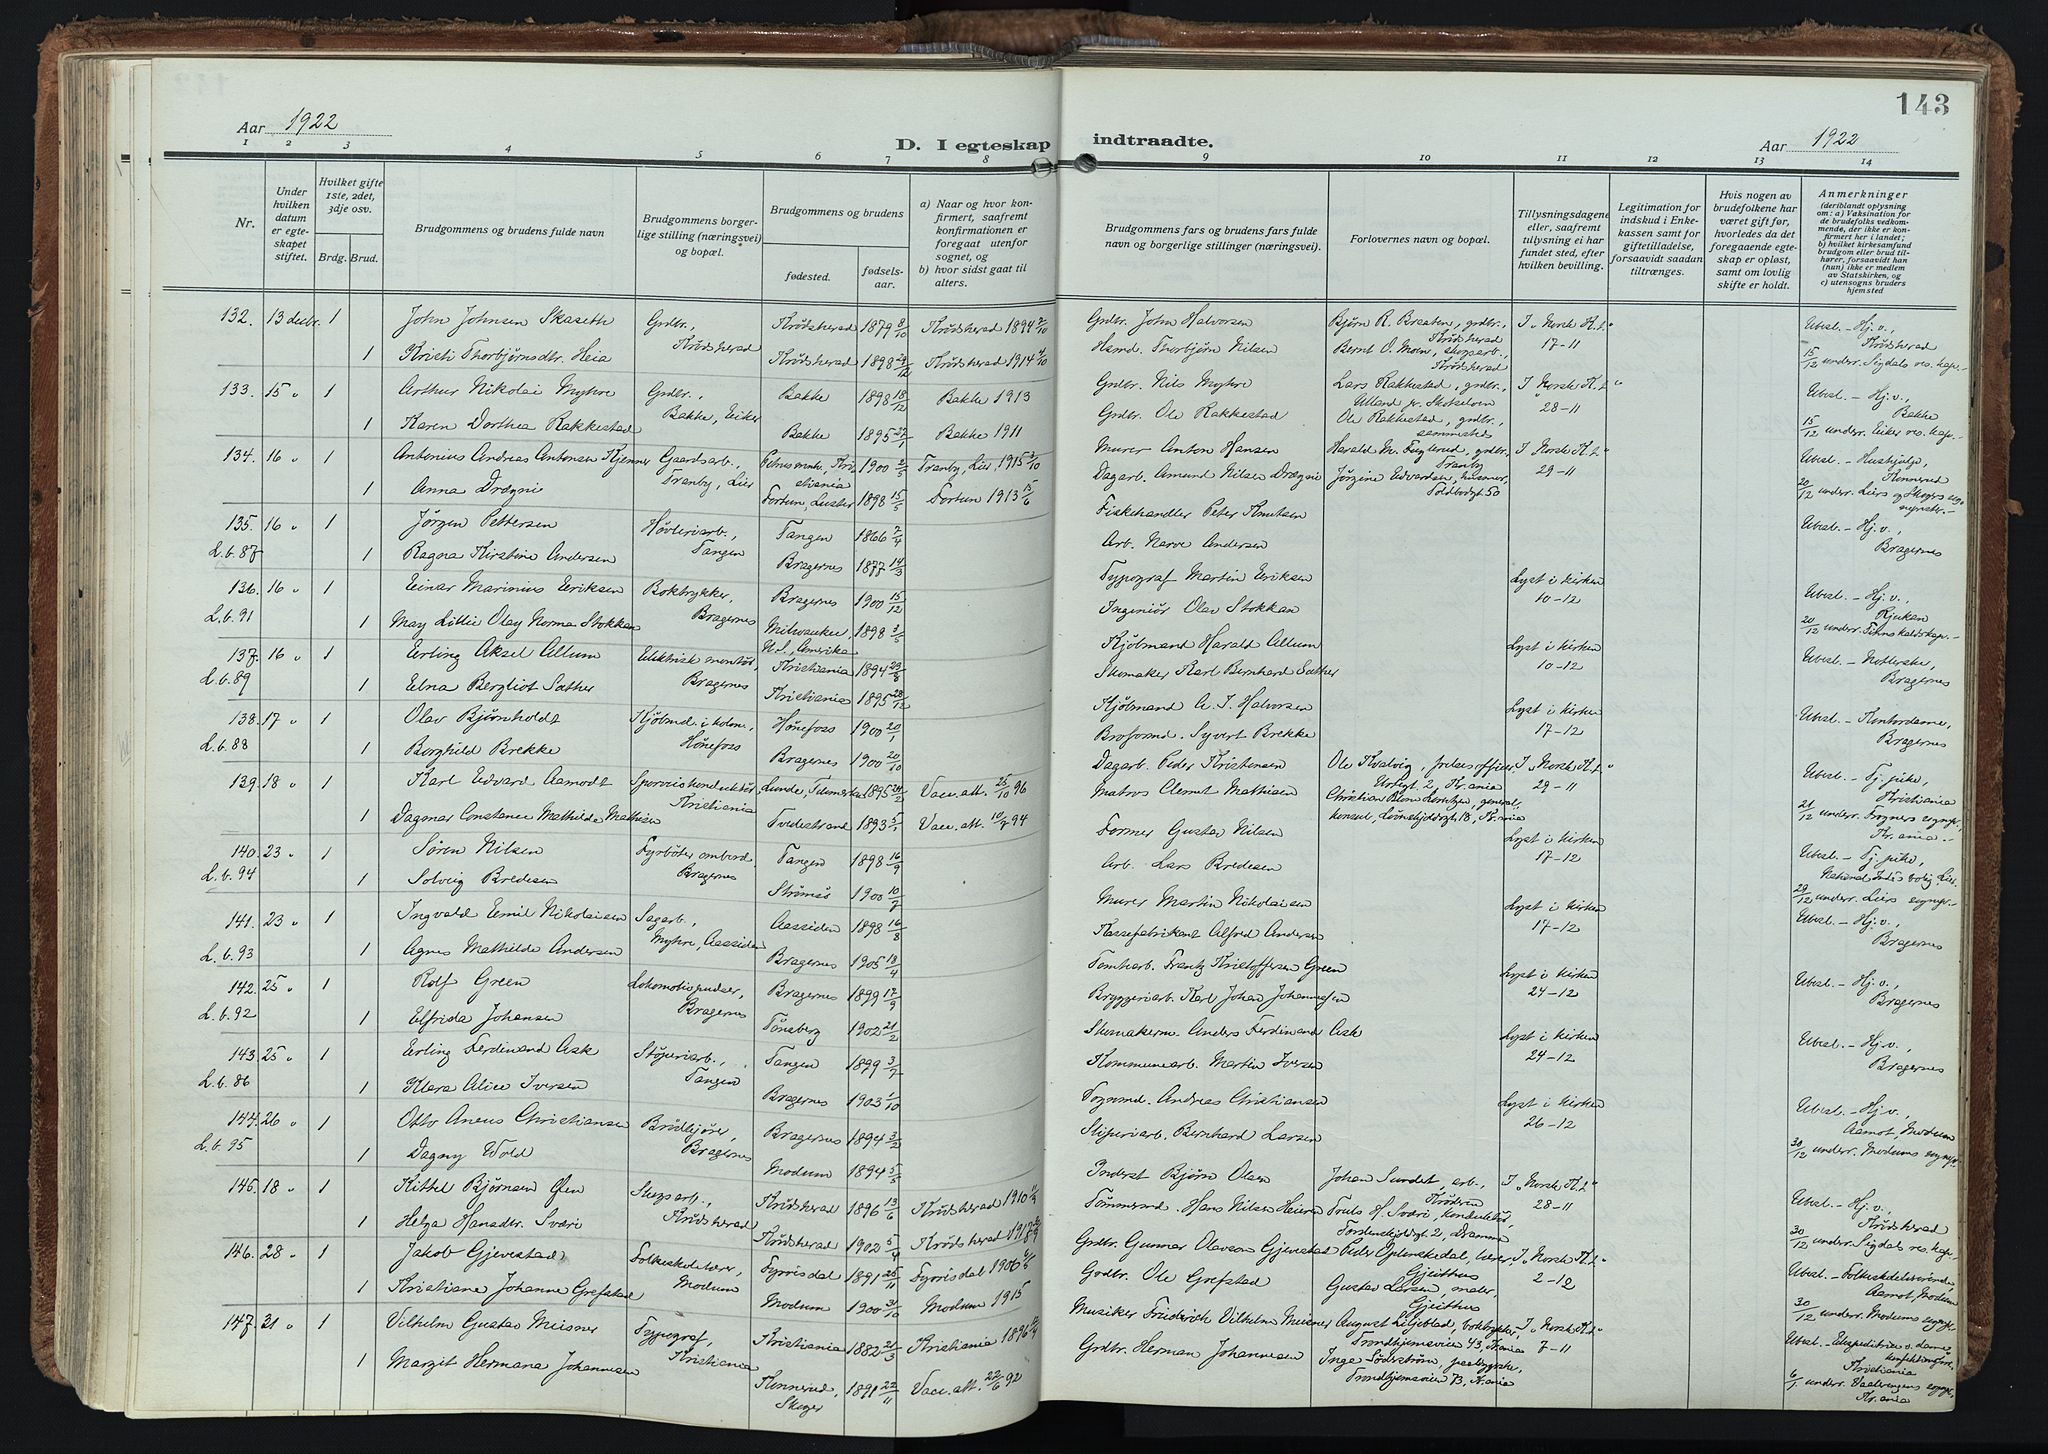 143
Aar 1922
D. I egteskap indtraadte.
Aar 1922
1 2 3 4 5 6 7 8 9 10 11 12 13 14
Nr.
Under hvilken datum er egteskapet stiftet.
Hvilket gifte 1ste, 2det, 3dje osv.
Brdg. Brud.
Brudgommens og brudens fulde navn
Brudgommens borgerlige stilling (næringsvei) og bopæl.
Brudgommens og brudens
fødested.
fødselsaar.
a) Naar og hvor konfirmert, saafremt konfirmationen er foregaat utenfor sognet, og
b) hvor sidst gaat til alters.
Brudgommens fars og brudens fars fulde navn og borgerlige stillinger (næringsvei).
Forlovernes navn og bopæl.
Tillysningsdagene eller, saafremt tillysning ei har fundet sted, efter hvilken bevilling.
Legitimation for indskud i Enkekassen samt for giftetilladelse, forsaavidt saadan tiltrænges.
Hvis nogen av brudefolkene har været gift før, hvorledes da det foregaaende egteskap er opløst, samt om lovlig skifte er holdt.
Anmerkninger
(deriblandt oplysning om: a) Vaksination for de brudefolks vedkommende, der ikke er konfirmert her i landet; b) hvilket kirkesamfund brudgom eller brud tilhører, forsaavidt han (hun) ikke er medlem av Statskirken, og c) utensogns bruders hjemsted
132. 13 decbr. 1 John Johnsen Skaseth Grdbr., Krødsherad Krødsherad 1879 8/10 Krødsherad 1894 7/10 Grdbr. John Halvorsen Bjørn R. Braaten, grdbr., Krødsherad I "Norsk K.t." 17-11 Ubesl. - Hj.v., Krødsherad
1 Kristi Thorbjørnsdtr. Heia Krødsherad 1898 29/12 Krødsherad 1914 4/10 Hsmd. Thorbjørn Nilsen Bernt O. Moen, skogsarb., Krødsherad 15/12 underr. Sigdals res. kap.-
133. 15 " 1 Arthur Nikolai Myhre Grdbr., Bakke, Eiker Bakke 1898 18/12 Bakke 1913 Grdbr. Nils Myhre Lars Rakkestad, grdbr., Ulland pr. Skotselven I "Norsk K.t." 28-11 Ubesl. - Hj.v., Bakke
1 Karen Dorthea Rakkestad Bakke 1895 27/1 Bakke 1911 Grdbr. Ole Rakkestad Ole Rakkestad, grdbr., sammesteds 15/12 underr. Eiker res. kap.-
134. 16 " 1 Antonius Andreas Antonsen Kjenner Gaardsarb., Tranby, Lier Petrus mnh. Kristiania 1900 2/5 Tranby, Lier, 1915 3/10 Murer Anton Hansen Harald M. Fuglerud, grdbr., Tranby I "Norsk K.t." 29-11 Ubesl. - Hushjelp, Konnerud
1 Anna Drægni Fortun, Luster 1898 15/5 Fortun 1913 15/6 Dagarb. Amund Nilsen Drægni Jørgine Edvardsen, Toldbodgt 50 20/12 underr. Liers og Skogers sogneprester.-
135. 16 " 1 Jørgen Pettersen Høvleriarb., Tangen Tangen 1866 2/4 Fiskehandler Peter Knutsen Ubesl. - Hj.v., Bragernes
L.b. 87 1 Ragna Kirstine Andersen Bragernes 1877 14/3 Arb. Narve Andersen
136. 16 " 1 Einar Marinius Eriksen Boktrykker, Bragernes Bragernes 1900 15/12 Typograf Martin Eriksen Lyst i kirken 10-12 Ubesl. - Hj.v., Rjukan
L.b. 91 1 May Lillie Olay Norma Stokkan Milwaukee, U.S., Amerika 1898 3/5 Ingeniør Olav Stokkan 20/12 underr. Tinns kaldskap.-
137. 16 " 1 Erling Aksel Allum Elektrisk montør, Bragernes Kristiania 1894 23/8 Kjøbmand Harald Allum Lyst i kirken 10-12 Ubesl. - Bragernes
L.b. 89 1 Edna Bergliot Sæther Kristiania 1895 28/12 Skomaker Karl Bernhard Sæther
138. 17 " 1 Olav Bjørnholdt Kjøbmd. i kolon., Hønefoss Hønefoss 1900 20/1 Kjøbmand A. I. Halvorsen Lyst i kirken 17-12 Ubesl. - Kontordame, Bragernes
L.b. 88 1 Borghild Brekke Bragernes 1900 20/10 Broformd. Syvert Brekke
139. 18 " 1 Karl Edvard Aamodt Sporveiskonduktør, Kristiania Lunde, Telemarken 1895 24/2 Vacc. att. 25/10 96 Dagarb. Peder Kristensen Ole Kvalvig, frelsesofficer, Urtegt 2, Kr.ania I "Norsk K.t." 29-11 Ubesl. - Tj. pike, Kristiania
1 Dagmar Constance Mathilde Mathisen Tvedestrand 1893 5/1 Vacc. att. 10/7 94 Matros Clemet Mathisen Christian Blom Lorentzen, generalkonsul, Løvenskjoldsgt 18, Kr.ania 21/12 underr. Frogners sognepr., Kr.ania.-
140. 23 " 1 Søren Nilsen Fyrbøter ombord, Bragernes Tangen 1898 16/9 Former Gustav Nilsen Lyst i kirken 17-12 Ubesl. - Tj. pike, Lier.
L.b. 94 1 Solveig Bredesen Strømsø 1900 10/7 Arb. Lars Bredesen 29/12 underr. Liers sognepr.-
141. 23 " 1 Ingvald Emil Nikolaisen Sagarb., Myhre, Aassiden Aassiden 1898 16/8 Murer Martin Nikolaisen Lyst i kirken 17-12 Ubesl. - Hj.v., Bragernes
L.b. 93 1 Agnes Mathilde Andersen Bragernes 1905 18/4 Kassefabrikant Alfred Andersen
142. 25 " 1 Rolf Green Lokomotivpudser, Bragernes Bragernes 1899 17/9 Tomtearb. Frantz Kristoffersen Green Lyst i kirken 24-12 Ubesl. - Hj.v., Bragernes
L.b. 92 1 Elfrida Johansen Tønsberg 1902 21/2 Bryggeriarb. Karl Johan Johannesen
143. 25 " 1 Erling Ferdinand Ask Støperiarb., Tangen Tangen 1899 3/7 Skomakerm. Anders Ferdinand Ask Lyst i kirken 24-12 Ubesl. - Hj.v., Bragernes
L.b. 86 1 Klara Alice Iversen Bragernes 1903 1/10 Kommunearb. Martin Iversen
144. 26 " 1 Otto Aneus Christiansen Brødkjører, Bragernes Bragernes 1894 3/2 Fogmd. Andreas Christiansen Lyst i kirken 26-12 Ubesl. - Hj.v., Aamot, Modum
L.b. 95 1 Dagny Wold Modum 1894 5/5 Sliperiarb. Bernhard Larsen 30/12 underr. Modums sognepr.
145. 18 " 1 Kittel Bjørnsen Øen Skogsarb., Krødsherad Krødsherad 1896 13/6 Krødsherad 1910 11/9 Inderst Bjørn Olsen Johan Sundet, arb., Krøderen I "Norsk K.t." 28-11 Ubesl. - Hj.v., Krødsherad
1 Helga Hansdtr. Sværi Krødsherad 1902 5/4 Krødsherad 1917 Tømmermd. Hans Nilsen Heieren Truls H. Sværi, konduktør, Tordenskjoldsgt 2, Drammen 30/12 underr. Sigdals res. kap.-
146. 28 " 1 Jakob Gjevestad Folkeskolelærer, Modum Fyrrisdal 1891 25/11 Fyrrisdal 1906 Grdbr. Gunnar Olavson Gjevestad Peder Gjelmskedal, lærer, Gjeithus I "Norsk K.t." 2-12 Ubesl. - Folkeskolelærerinde, Aamot, Modum
1 Kristiane Johanne Grefstad Modum 1900 31/10 Modum 1915 Godbr. Ole Grefstad Gustav Larsen, maler, Gjeithus 30/12 underr. Modums sognepr.
147. 31 " 1 Vilhelm Gustav Meisner Typograf, Kristiania Kristiania 1882 21/3 Kristiania 1896 12/4 Musiker Friderich Vilhelm Meisner August Liljeblad, boktrykker, Trondhjemsveien 43, Kr.ania I "Norsk K.t." 7-11 Ubesl. - Ekspeditrice v. Dame konfektionsforr., Kristiania
1 Margit Hermana Johannesen Konnerud, Skoger 1891 22/11 Vacc. att. 22/6 92 Grdbr. Herman Johannesen Inga Söderström, Trondhjemsveien 73, Kr.ania 6/1 underr. Vaalerengens sognepr., Kr.ania